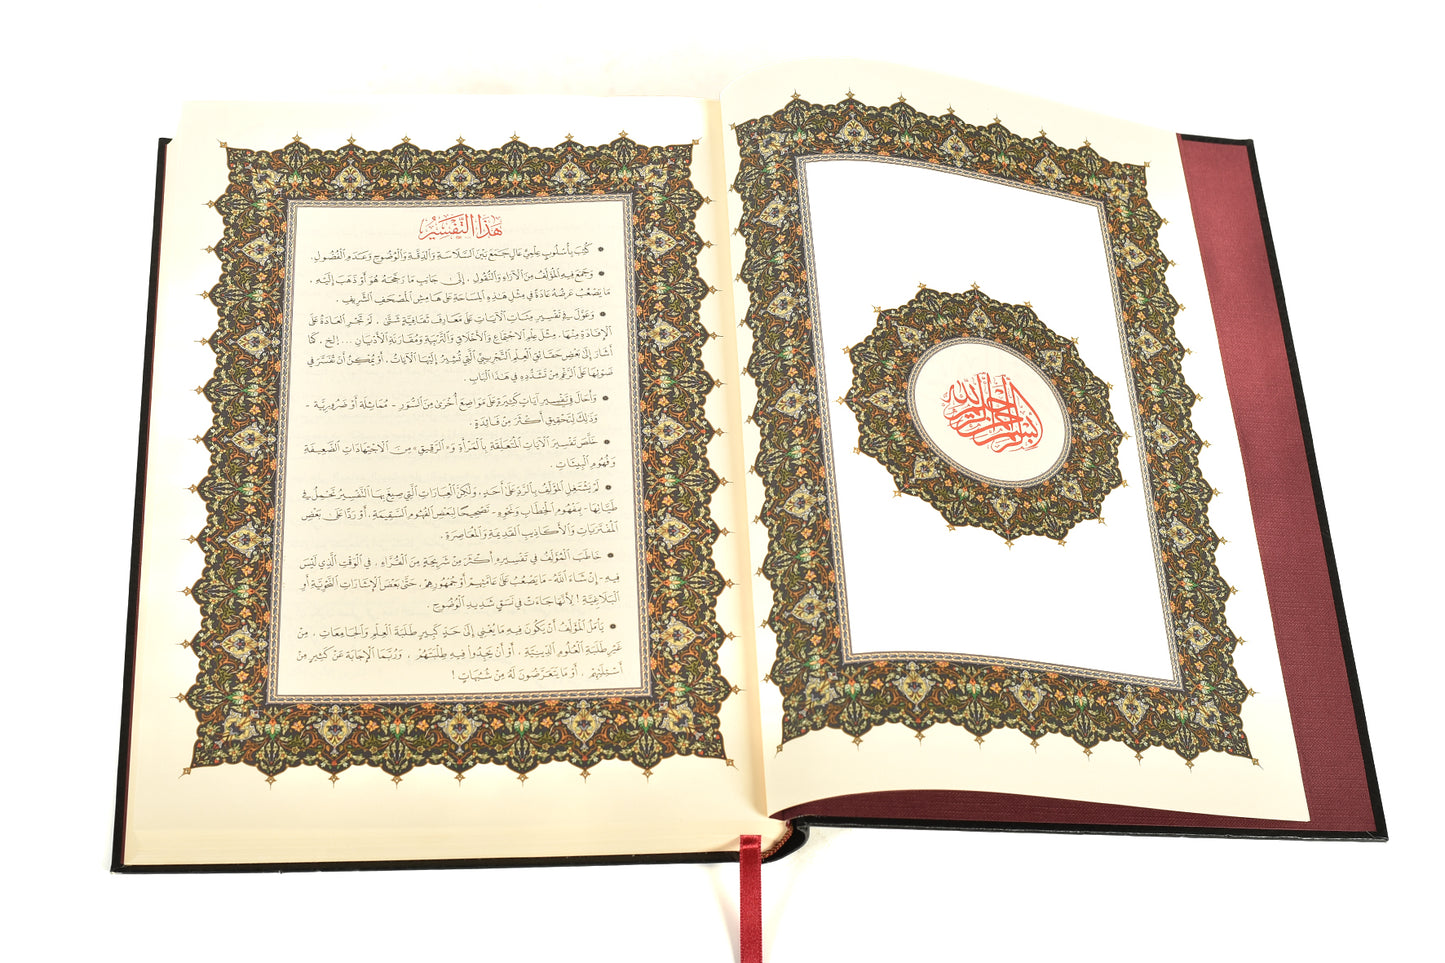 بسم الله الرحمن الرحيم
هَذَا التَّفْسِيرُ
• كُتِبَ بِأُسْلُوبٍ عِلْمِيٍّ عَالٍ جَمَعَ بَيْنَ السَّلَاسَةِ وَالدِّقَّةِ وَالْوُضُوحِ وَعَدَمِ الْفُضُولِ.
• وَجَمَعَ فِيهِ الْمُؤَلِّفُ مِنَ الْآرَاءِ وَالنُّقُولِ، إِلَى جَانِبِ مَا رَجَّحَهُ هُوَ أَوْ ذَهَبَ إِلَيْهِ،
مَا يَصْعُبُ عَرْضُهُ عَادَةً فِي مِثْلِ هَذِهِ الْمِسَاحَةِ عَلَى هَامِشِ الْمُصْحَفِ الشَّرِيفِ.
• وَعَوَّلَ فِي تَفْسِيرِ مِئَاتِ الْآيَاتِ عَلَى مَعَارِفَ ثَقَافِيَّةٍ شَتَّى، لَمْ تَجْرِ الْعَادَةُ عَلَى
الْإِفَادَةِ مِنْهَا، مِثْلَ عِلْمِ الِاجْتِمَاعِ وَالْأَخْلَاقِ وَالتَّرْبِيَةِ وَمُقَارَنَةِ الْأَدْيَانِ... إلخ، كَمَا
أَشَارَ إِلَى بَعْضِ حَقَائِقِ الْعِلْمِ التَّجْرِيبِيِّ الَّتِي تُشِيرُ إِلَيْهَا الْآيَاتُ، أَوْ يُمْكِنُ أَنْ تُفَسَّرَ فِي
ضَوْئِهَا عَلَى الرَّغْمِ مِنْ تَشَدُّدِهِ فِي هَذَا الْبَابِ.
• وَأَحَالَ فِي تَفْسِيرِ آيَاتٍ كَثِيرَةٍ عَلَى مَوَاضِعَ أُخْرَى مِنَ السُّوَرِ - مُمَاثِلَةٍ أَوْ ضَرُورِيَّةٍ -
وَذَلِكَ لِتَحْقِيقِ أَكْثَرَ مِنْ فَائِدَةٍ.
• خَلَّصَ تَفْسِيرَ الْآيَاتِ الْمُتَعَلِّقَةِ بِالْمَرْأَةِ وَ«الرَّقِيقِ» مِنَ الِاجْتِهَادَاتِ الضَّعِيفَةِ
وَفُهُومِ الْبِيئَاتِ.
• لَمْ يَشْتَغِلِ الْمُؤَلِّفُ بِالرَّدِّ عَلَى أَحَدٍ، وَلَكِنَّ الْعِبَارَاتِ الَّتِي صِيغَ بِهَا التَّفْسِيرُ تَحْمِلُ فِي
طَيَّاتِهَا - بِمَفْهُومِ الْخِطَابِ وَنَحْوِهِ - تَصْحِيحًا لِبَعْضِ الْفُهُومِ السَّقِيمَةِ، أَوْ رَدًّا عَلَى بَعْضِ
الْمُفْتَرَيَاتِ وَالْأَكَاذِيبِ الْقَدِيمَةِ وَالْمُعَاصِرَةِ.
• خَاطَبَ الْمُؤَلِّفُ فِي تَفْسِيرِهِ أَكْثَرَ مِنْ شَرِيحَةٍ مِنَ الْقُرَّاءِ، فِي الْوَقْتِ الَّذِي لَيْسَ
فِيهِ - إِنْ شَاءَ اللهُ - مَا يَصْعُبُ عَلَى عَامَّتِهِمْ أَوْ جُمْهُورِهِمْ، حَتَّى بَعْضُ الْإِشَارَاتِ النَّحْوِيَّةِ أَوِ
الْبَلَاغِيَّةِ! لِأَنَّهَا جَاءَتْ فِي نَسَقٍ شَدِيدِ الْوُضُوحِ.
• يَأْمُلُ الْمُؤَلِّفُ أَنْ يَكُونَ فِيهِ مَا يُغْنِي إِلَى حَدٍّ كَبِيرٍ طَلَبَةَ الْعِلْمِ وَالْجَامِعَاتِ، مِنْ
غَيْرِ طَلَبَةِ الْعُلُومِ الدِّينِيَّةِ، أَوْ أَنْ يَجِدُوا فِيهِ طَلِبَتَهُمْ، وَرُبَّمَا الْإِجَابَةَ عَنْ كَثِيرٍ مِنْ
أَسْئِلَتِهِمْ، أَوْ مَا يَتَعَرَّضُونَ لَهُ مِنْ شُبُهَاتٍ!